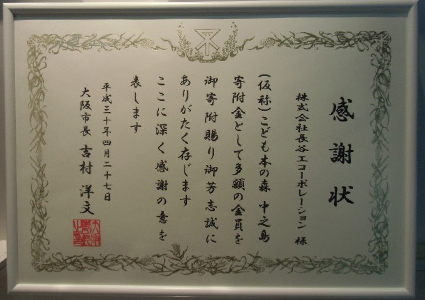 感謝状
株式会社長谷工コーポレーション 様
(仮称)こども本の森 中之島
寄附金として多額の金員を
御寄附賜り御芳志誠に
ありがたく存じます
ここに深く感謝の意を
表します
平成三十年四月二十七日
大阪市長 吉村 洋文